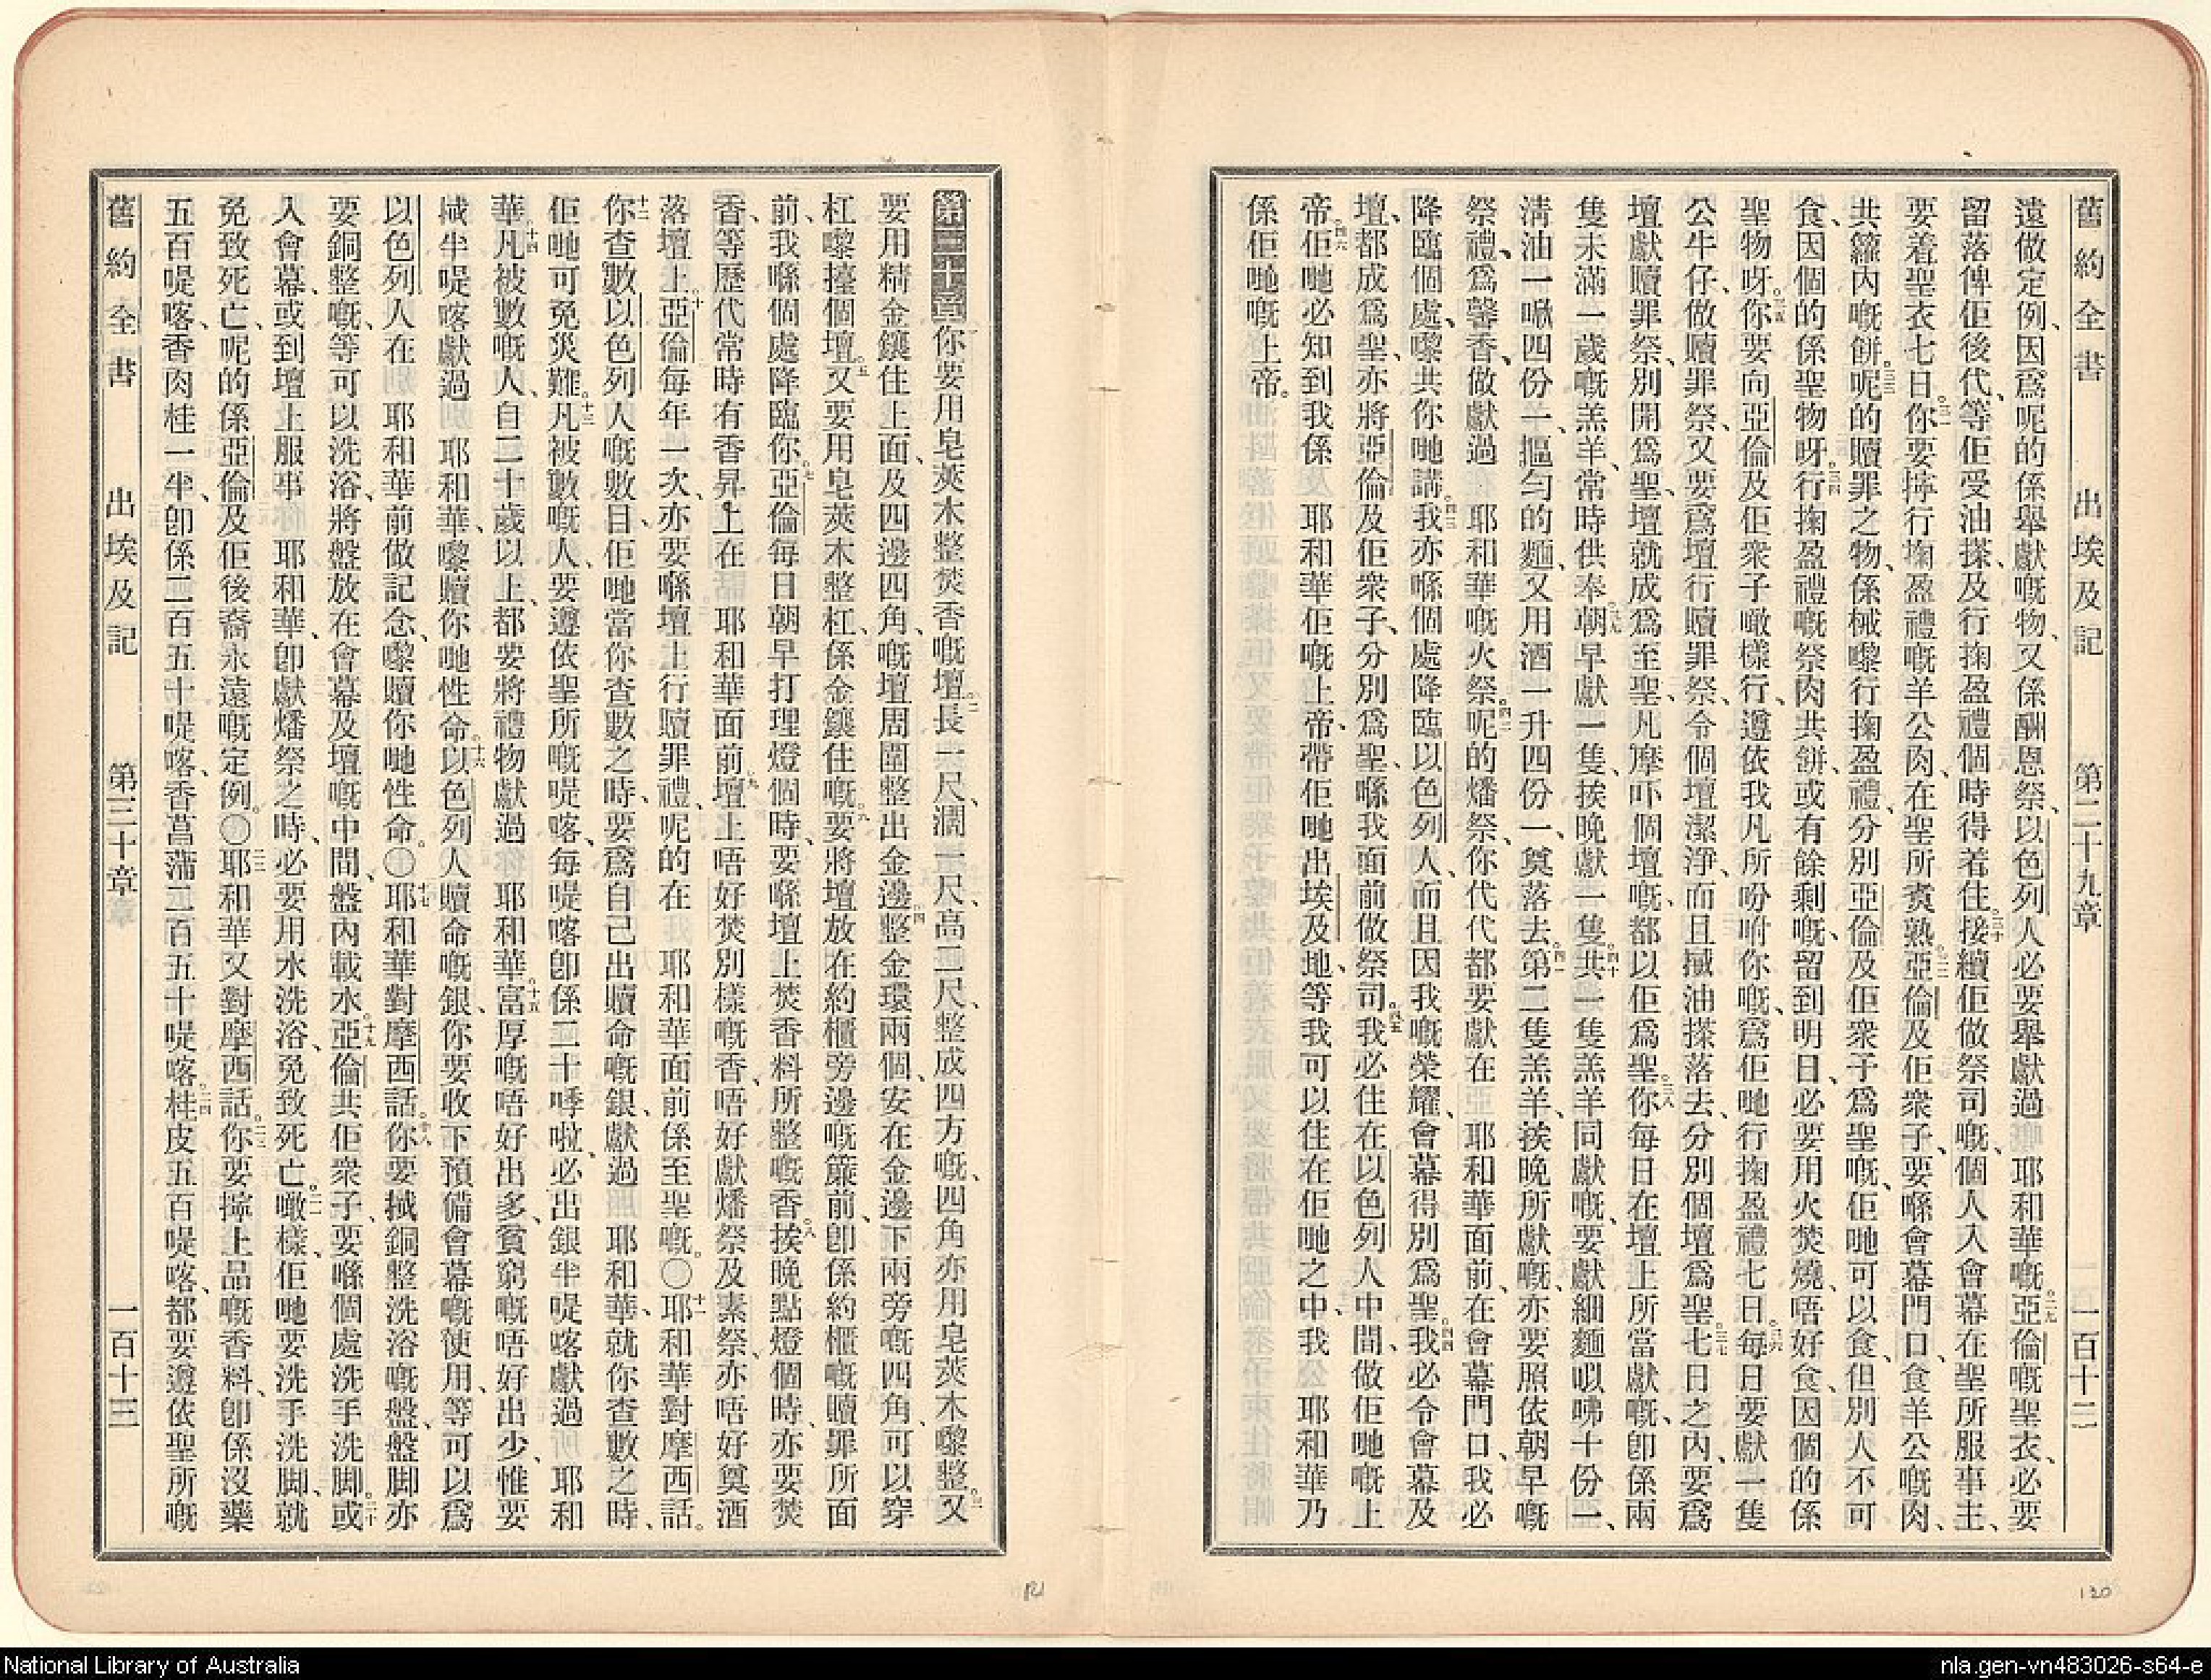 舊約全書　出埃及記　第二十九章　一百十二
遠做定例、因爲呢的係舉獻嘅物、又係酬恩祭、以色列人必要舉獻過　耶和華嘅。二九亞倫嘅聖衣、必要
留落俾佢後代、等佢受油搽、及行掬盈禮個時得着住。三十接續佢做祭司嘅、個人入會幕在聖所服事主、
要着聖衣七日。三一你要擰行掬盈禮嘅羊公肉、在聖所煑熟。三二亞倫及佢衆子、要喺會幕門口、食羊公嘅肉、
共籮內嘅餅。三三呢的贖罪之物、係械嚟行掬盈禮、分別亞倫及佢衆子爲聖嘅、佢哋可以食、但別人不可
食、因個的係聖物呀。三四行掬盈禮嘅祭肉共餅、或有餘剩嘅、留到明日、必要用火焚燒、唔好食、因個的係
聖物呀。三五你要向亞倫及佢衆子噉樣行、遵依我凡所吩咐你嘅、爲佢哋行掬盈禮七日。三六每日要獻一隻
公牛仔、做贖罪祭、又要爲壇行贖罪祭、令個壇潔淨、而且搣油搽落去、分別個壇爲聖。三七七日之內、要爲
壇獻贖罪祭、別開爲聖、壇就成爲至聖、凡摩吓個壇嘅、都以佢爲聖。三八你每日在壇上所當獻嘅、卽係兩
隻未滿一歲嘅羔羊、常時供奉。三九朝早獻一隻、挨晚獻一隻。四十共一隻羔羊同獻嘅、要獻細麵㕥咈十份一、
淸油一㖩四份一、搵勻的麵、又用酒一升四份一、奠落去。四一第二隻羔羊、挨晚所獻嘅、亦要照依朝早嘅
祭禮、爲馨香、做獻過　耶和華嘅火祭。四二呢的燔祭、你代代都要獻在　耶和華面前、在會幕門口、我必
降臨個處、嚟共你哋講。四三我亦喺個處降臨以色列人、而且因我嘅榮耀、會幕得別爲聖。四四我必令會幕及
壇、都成爲聖、亦將亞倫及佢衆子、分別爲聖、喺我面前做祭司。四五我必住在以色列人中間、做佢哋嘅上
帝。四六佢哋必知到我係　耶和華佢嘅上帝、帶佢哋出埃及地、等我可以住在佢哋之中、我　耶和華乃
係佢哋嘅上帝。
第三十章你要用皂莢木整焚香嘅壇。二長一尺、濶一尺、高二尺、整成四方嘅、四角亦用皂莢木嚟整。三又
要用精金鑲住上面、及四邊四角、嘅壇周圍整出金邊。四整金環兩個、安在金邊下兩旁嘅四角、可以穿
杠嚟擡個壇。五又要用皂莢木整杠、係金鑲住嘅。六要將壇放在約櫃旁邊嘅簾前、卽係約櫃嘅贖罪所面
前、我喺個處降臨你。七亞倫每日朝早打理燈個時、要喺壇上焚香料所整嘅香。八挨晚點燈個時、亦要焚
香、等歷代常時有香昇上在　耶和華面前。九壇上唔好焚別樣嘅香、唔好獻燔祭及素祭、亦唔好奠酒
落壇上。十亞倫每年一次、亦要喺壇上行贖罪禮、呢的在　耶和華面前係至聖嘅。〇十一耶和華對摩西話。
十二你查數以色列人嘅數目、佢哋當你查數之時、要爲自己出贖命嘅銀、獻過　耶和華、就你查數之時、
佢哋可免災難。十三凡被數嘅人、要遵依聖所嘅㖷喀、每㖷喀卽係二十㖀啦、必出銀半㖷喀獻過　耶和
華。十四凡被數嘅人、自二十歲以上、都要將禮物獻過　耶和華。十五富厚嘅唔好出多、貧窮嘅唔好出少、惟要
搣半㖷喀獻過　耶和華、嚟贖你哋性命。十六以色列人贖命嘅銀、你要收下預備會幕嘅使用、等可以爲
以色列人在　耶和華前做記念、嚟贖你哋性命。〇十七耶和華對摩西話。十八你要搣銅整洗浴嘅盤、盤脚亦
要銅整嘅、等可以洗浴、將盤放在會幕及壇嘅中間、盤內載水。十九亞倫共佢衆子、要喺個處洗手洗脚。二十或
入會幕、或到壇上服事　耶和華、卽獻燔祭之時、必要用水洗浴、免致死亡。二一噉樣、佢哋要洗手洗脚、就
免致死亡、呢的係亞倫及佢後裔永遠嘅定例。〇二二耶和華又對摩西話。二三你要擰上品嘅香料、卽係沒藥
五百㖷喀、香肉桂一半、卽係二百五十㖷喀、香菖蒲二百五十㖷喀。二四桂皮五百㖷喀、都要遵依聖所嘅
舊約全書　出埃及記　第三十章　一百十三
120
121
National Library of Australia
nla.gen-vn483026-s64-e